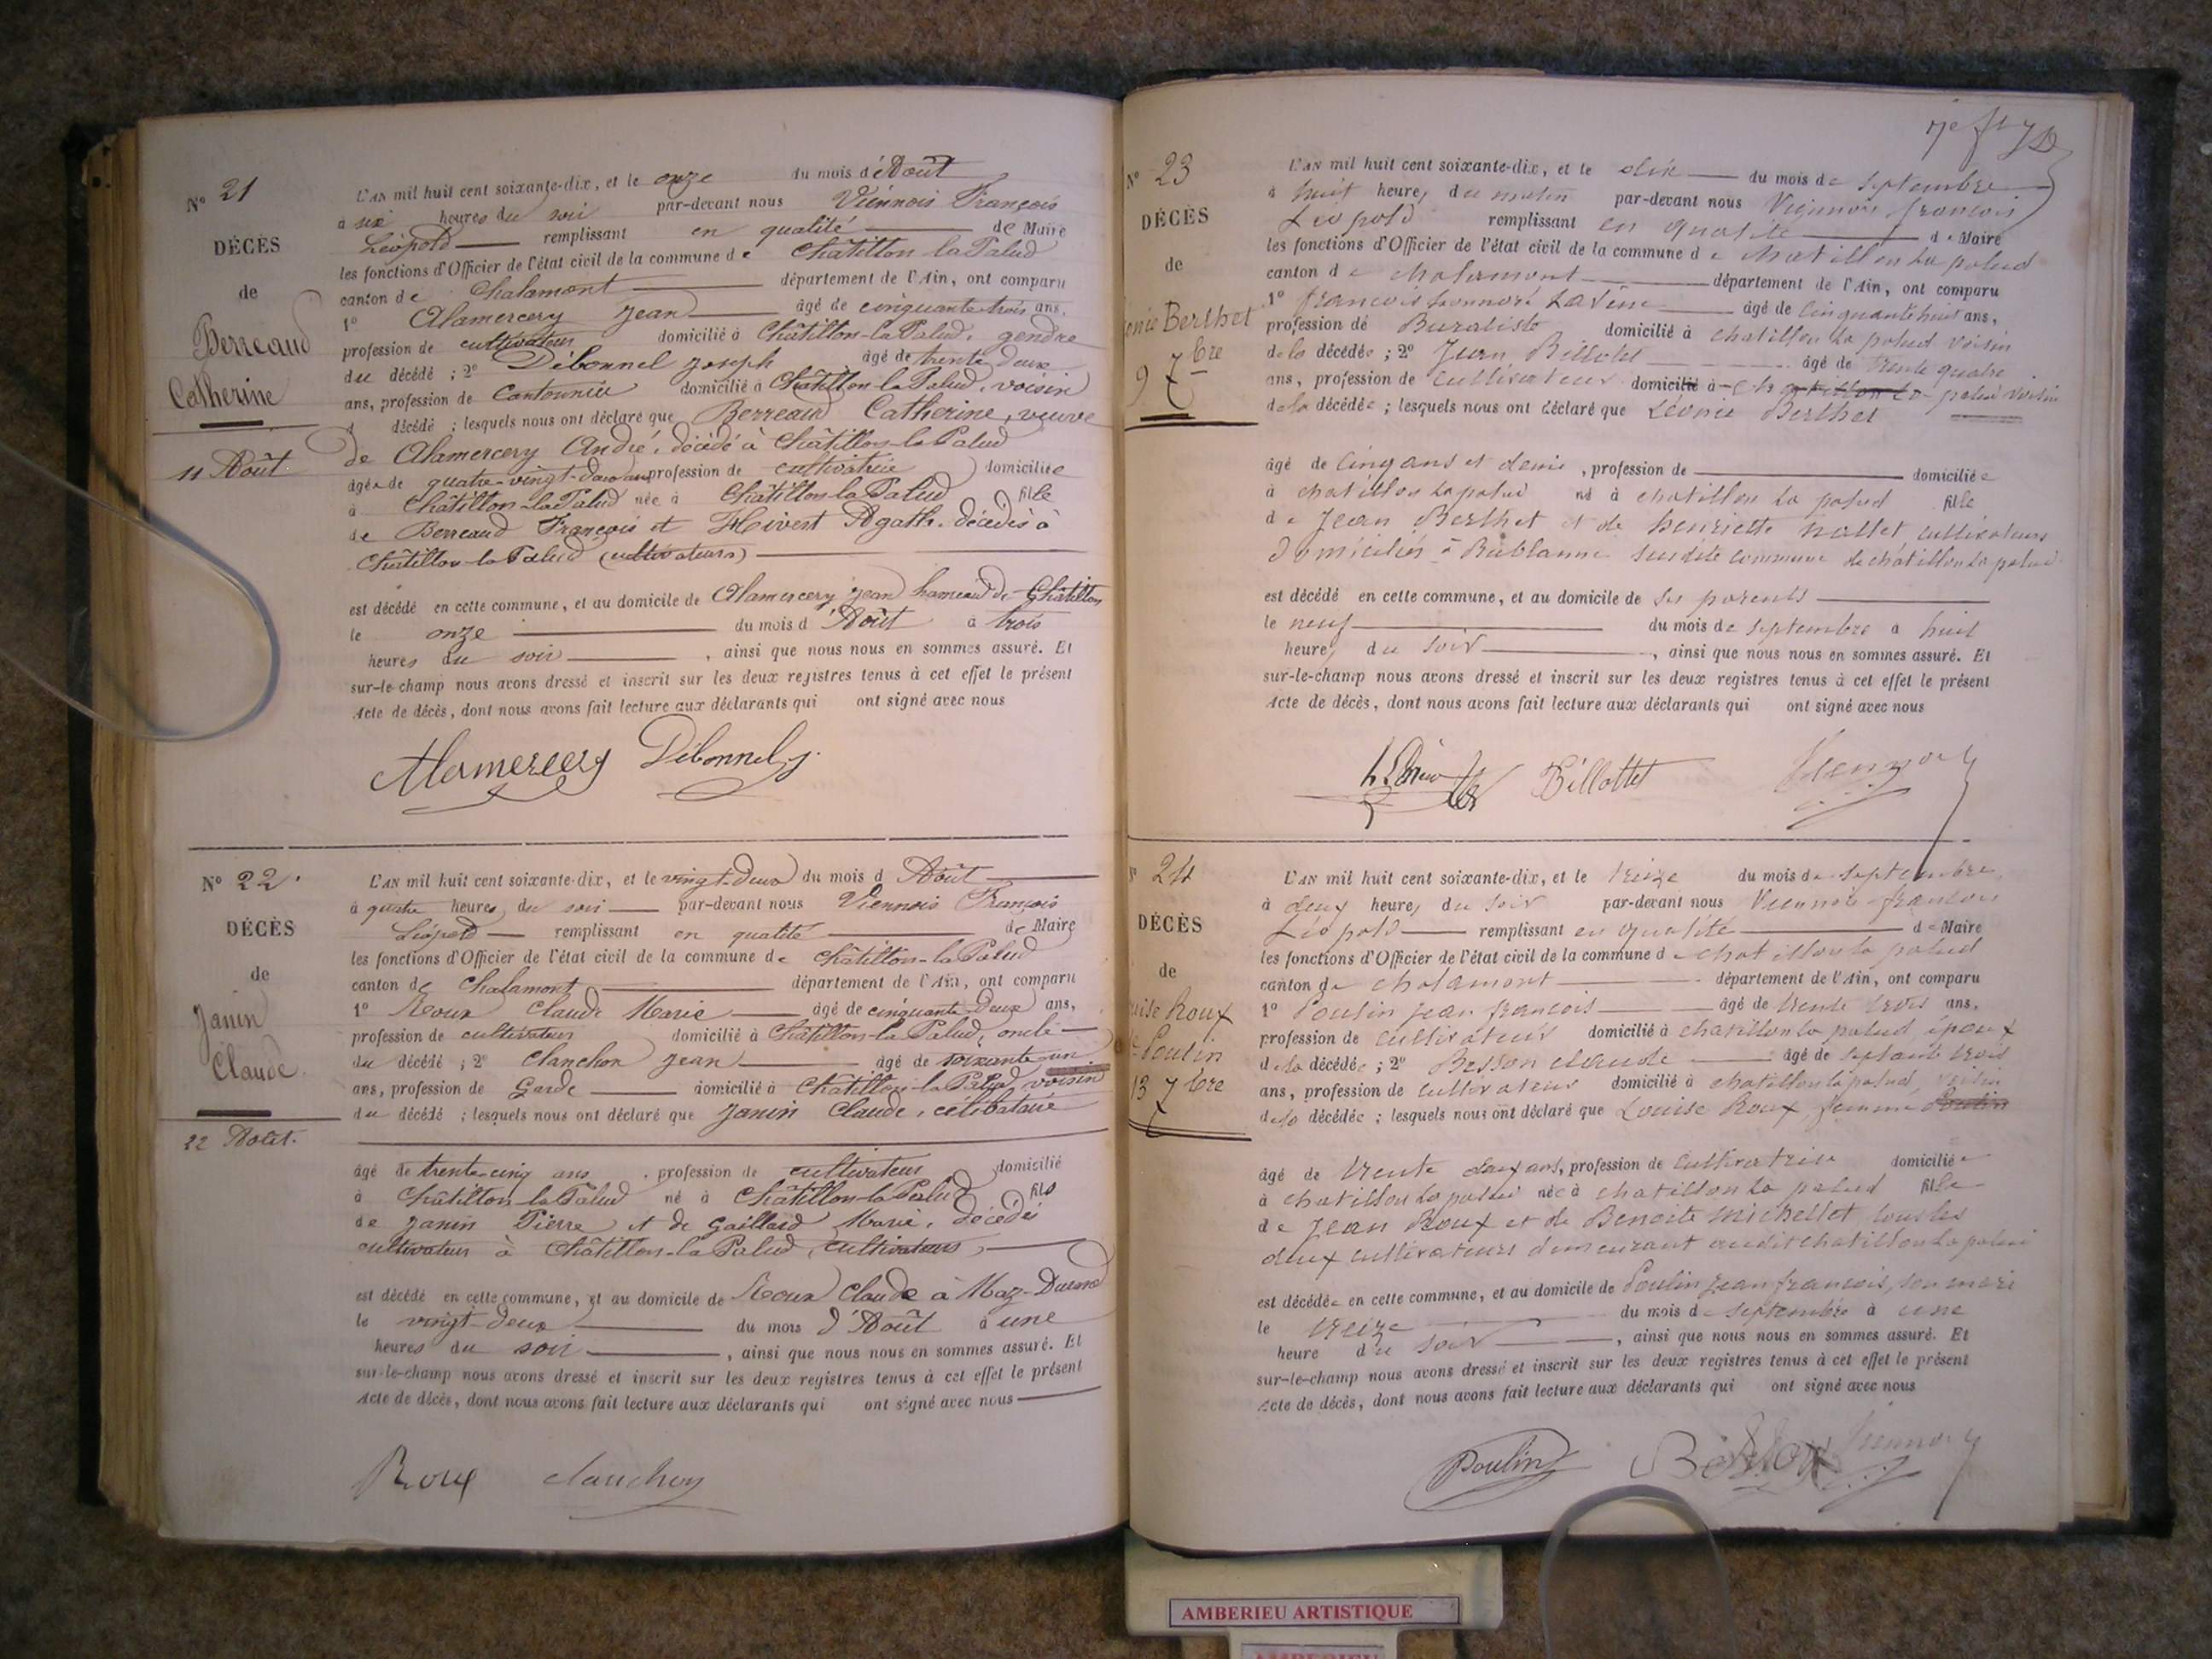 N° 21
DÉCÈS
de
Berreaud
Catherine
11 Août
L'AN mil huit cent soixante-dix, et le onze du mois d'Août
à six heures du soir par-devant nous Viennois François
Léopold remplissant en qualité de Maire
les fonctions d'Officier de l'état civil de la commune de Châtillon-la-Palud
canton de Chalamont département de l'Ain, ont comparu
1° Alamercery Jean âgé de cinquante-trois ans,
profession de cultivateur domicilié à Châtillon-la-Palud, gendre
du décédé ; 2° Débonnel Joseph âgé de trente deux
ans, profession de Cantonnier domicilié à Châtillon-la-Palud, voisin
d décédé ; lesquels nous ont déclaré que Berreaud Catherine, veuve
de Alamercery André, décédé à Châtillon-la-Palud
âgée de quatre-vingt- ans profession de cultivatrice domiciliée
à Châtillon-la-Palud née à Châtillon-la-Palud fille
de Berreaud François et Hivert Agathe. décédés à
Châtillon-la-Palud (cultivateurs)
est décédé en cette commune, et au domicile de Alamercery Jean hameau de Châtillon
le onze du mois d'Août à trois
heures du soir, ainsi que nous nous en sommes assuré. Et
sur-le-champ nous avons dressé et inscrit sur les deux registres tenus à cet effet le présent
Acte de décès, dont nous avons fait lecture aux déclarants qui ont signé avec nous
Alamercery Débonnel j.
N° 22
DÉCÈS
de
Janin
Claude
22 Août.
L'AN mil huit cent soixante-dix, et le vingt-deux du mois d Août
à quatre heures du soir par-devant nous Viennois François
Léopold remplissant en qualité de Maire
les fonctions d'Officier de l'état civil de la commune de Châtillon-la-Palud
canton de Chalamont département de l'Ain, ont comparu
1° Roux Claude Marie âgé de cinquante-deux ans,
profession de cultivateur domicilié à Châtillon-la-Palud, oncle
du décédé ; 2° Clanchon Jean âgé de soixante-un
ans, profession de Garde domicilié à Châtillon-la-Palud, voisin
du décédé ; lesquels nous ont déclaré que Janin Claude, célibataire
âgé de trente-cinq ans, profession de cultivateur domicilié
à Châtillon-la-Palud né à Châtillon-la-Palud fils
de Janin Pierre et de Gaillard Marie, décédés
cultivateurs à Châtillon-la-Palud, cultivateurs,
est décédé en cette commune, et au domicile de Roux Claude à Maz-Durand
le vingt-deux du mois d'Août à une
heures du soir, ainsi que nous nous en sommes assuré. Et
sur-le-champ nous avons dressé et inscrit sur les deux registres tenus à cet effet le présent
Acte de décès, dont nous avons fait lecture aux déclarants qui ont signé avec nous
Roux clanchon
N° 23
DÉCÈS
de
onie Berthet
9 7bre
L'AN mil huit cent soixante-dix, et le dix du mois de septembre
à huit heures du matin par-devant nous Viennois françois
Léopold remplissant en qualité de Maire
les fonctions d'Officier de l'état civil de la commune de chatillon la palud
canton de chalamont département de l'Ain, ont comparu
1° françois honnoré âgé de cinquante huit ans,
profession de Buraliste domicilié à chatillon la palud voisin
de la décédée ; 2° Jean Billotet âgé de trente quatre
ans, profession de cultivateur domicilié à chatillon la palud voisin
de la décédée ; lesquels nous ont déclaré que Léonie Berthet
âgé de cinq ans et demie, profession de domiciliée
à chatillon la palud né à chatillon la palud fille
de Jean Berthet et de henriette nallet, cultivateurs
domiciliés à Bublanne susdite commune de chatillon la palud
est décédé en cette commune, et au domicile de ses parents
le neuf du mois de septembre à huit
heures du soir, ainsi que nous nous en sommes assuré. Et
sur-le-champ nous avons dressé et inscrit sur les deux registres tenus à cet effet le présent
Acte de décès, dont nous avons fait lecture aux déclarants qui ont signé avec nous
Billottet Viennois
N° 24
DÉCÈS
de
uise Roux
Poulin
13 7bre
L'AN mil huit cent soixante-dix, et le treize du mois de septembre,
à deux heures du soir par-devant nous Viennois françois
Léopold remplissant en qualité de Maire
les fonctions d'Officier de l'état civil de la commune de chatillon la palud
canton de chalamont département de l'Ain, ont comparu
1° Poulin jean françois âgé de trente trois ans,
profession de cultivateur domicilié à chatillon la palud, époux
de la décédée ; 2° Besson claude âgé de septante trois
ans, profession de cultivateur domicilié à chatillon la palud, voisin
de la décédée ; lesquels nous ont déclaré que Louise Roux, femme Poulin
âgé de trente deux ans, profession de cultivatrice domiciliée
à chatillon la palud née à chatillon la palud fille
de Jean Roux et de Benoite Michellet tous les
deux cultivateurs demeurant audit chatillon la palud
est décédée en cette commune, et au domicile de Poulin jean françois, son mari
le treize du mois de septembre à une
heure du soir, ainsi que nous nous en sommes assuré. Et
sur-le-champ nous avons dressé et inscrit sur les deux registres tenus à cet effet le présent
Acte de décès, dont nous avons fait lecture aux déclarants qui ont signé avec nous
Poulin Besson Viennois
AMBERIEU ARTISTIQUE
AMBERIEU